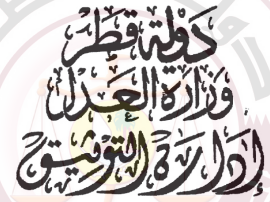 دَوْلَة قَطَر
وَزَارَة العَدل
إدَارَة التَوثِيق